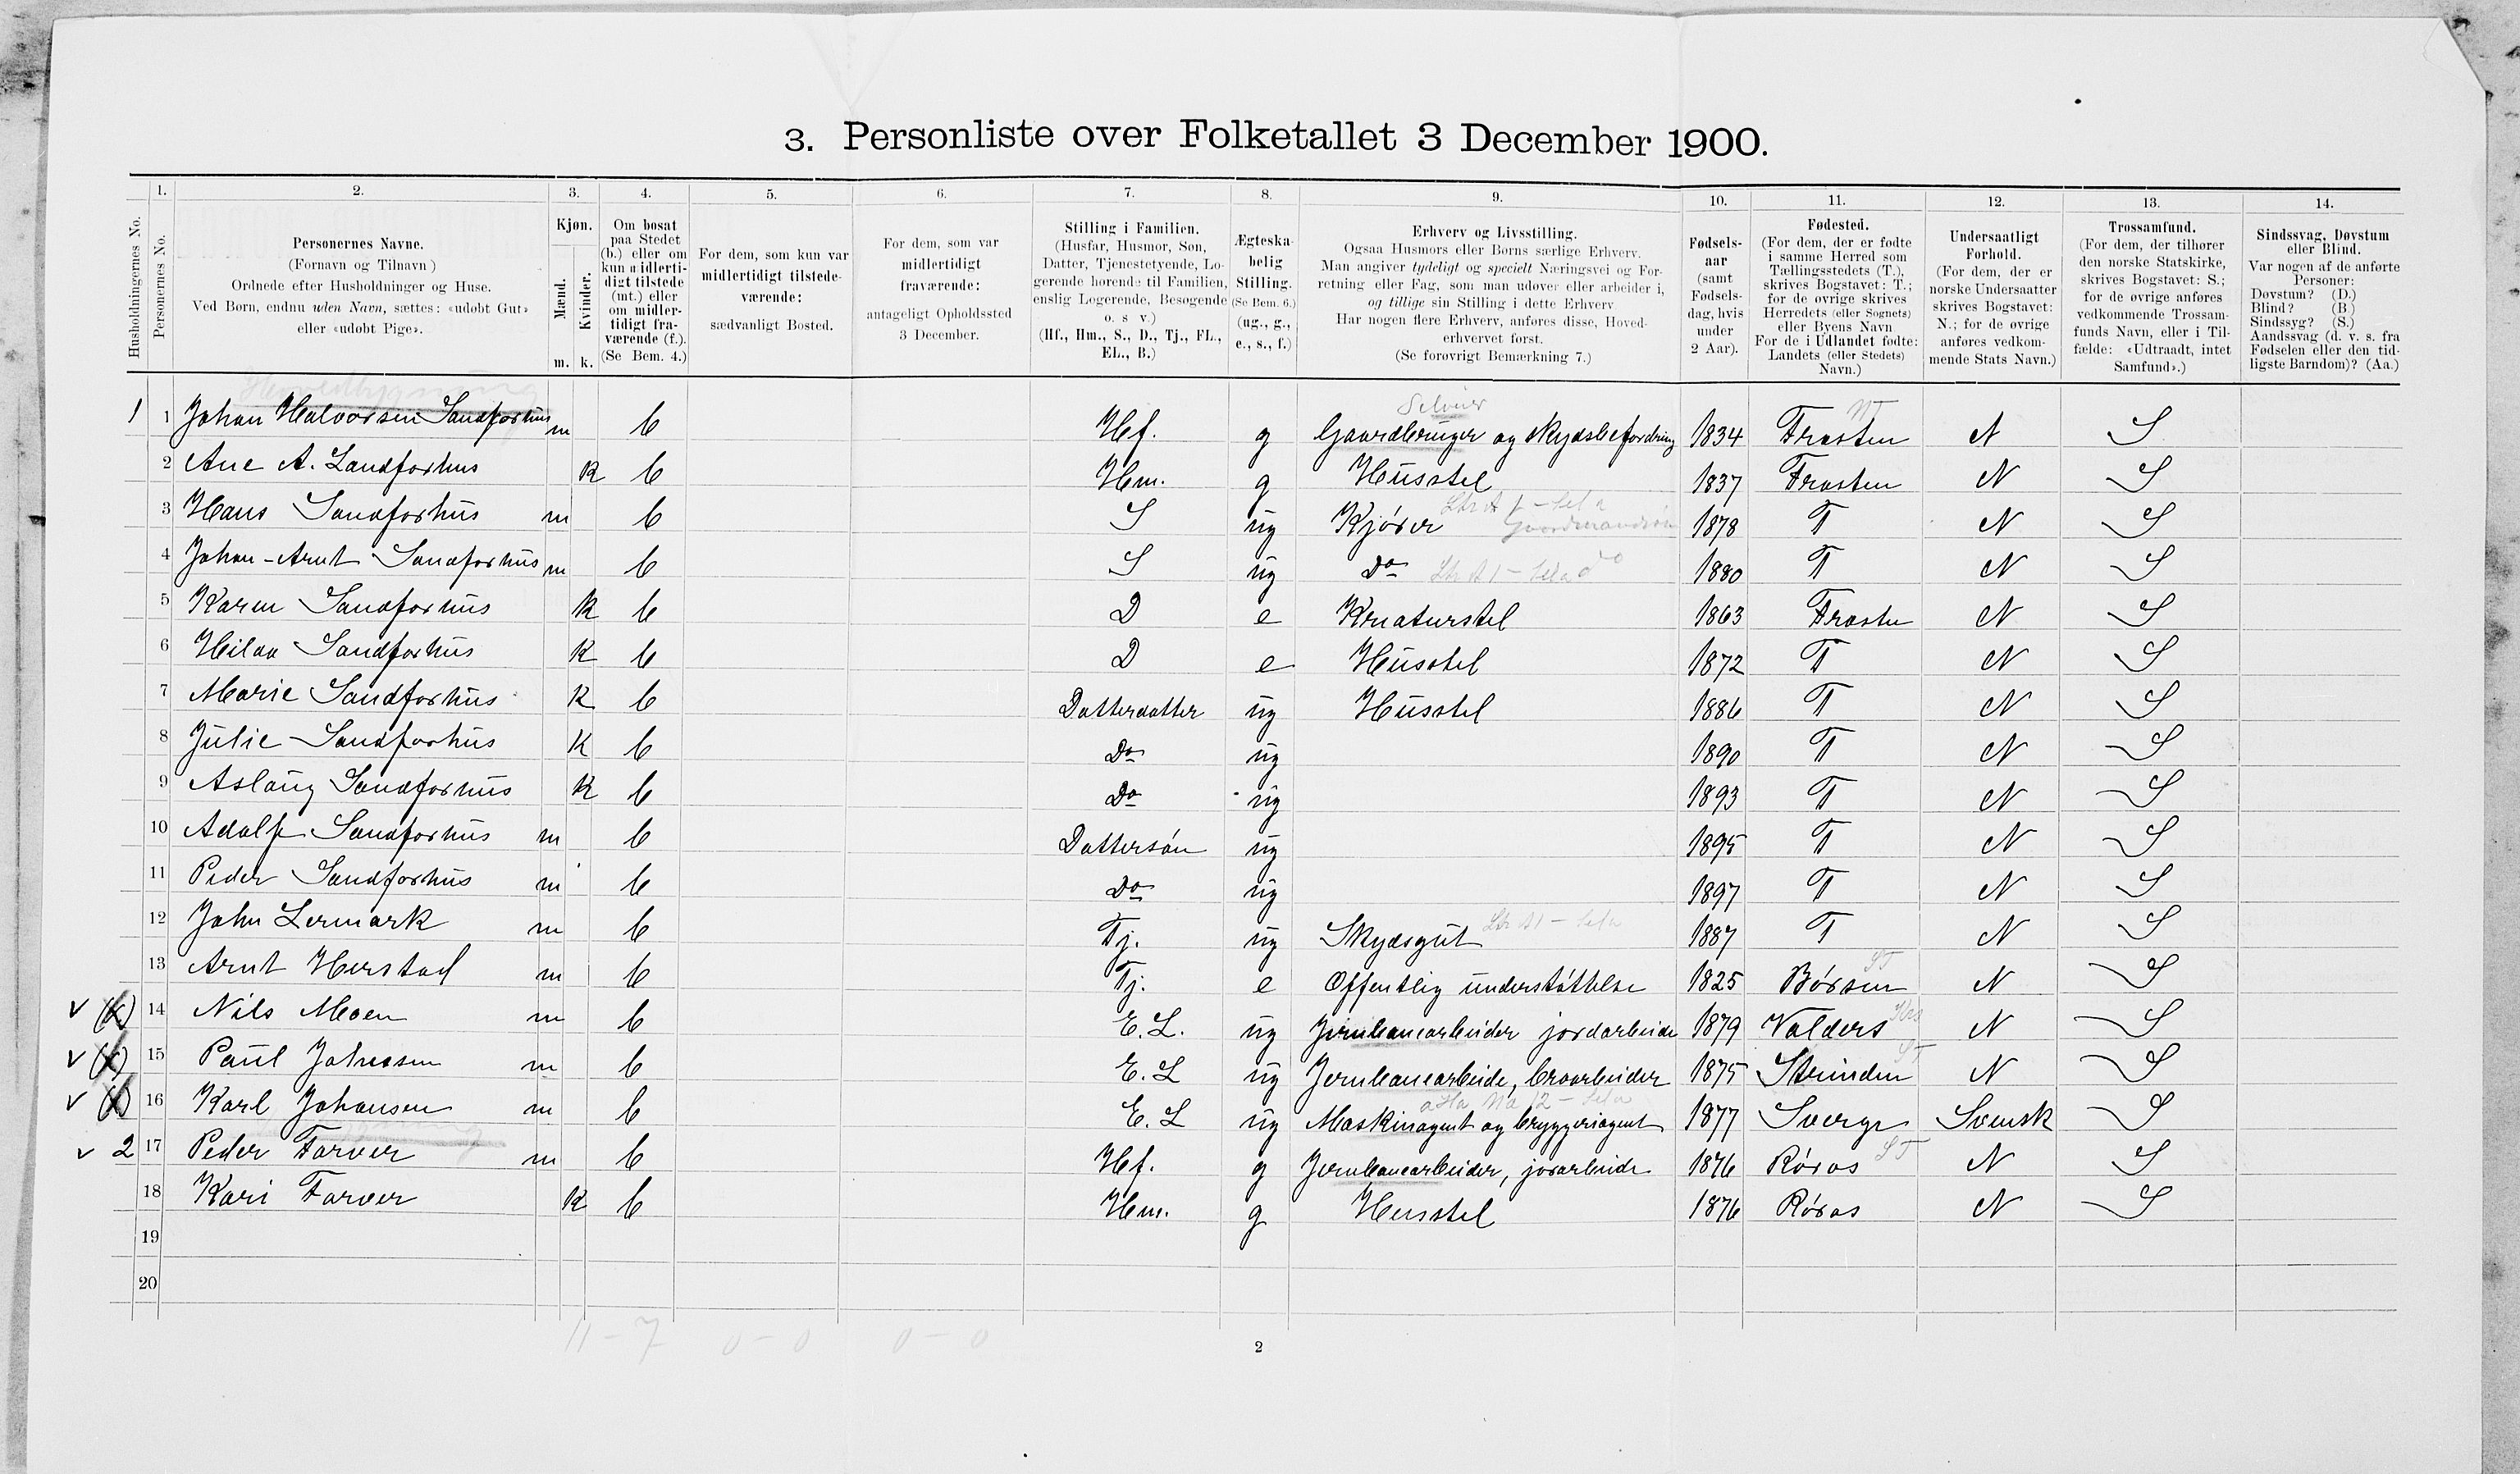 3. Personliste over Folketallet 3 December 1900.
1. 2. 3. 4. 5. 6. 7. 8. 9. 10. 11. 12. 13. 14.
Husholdningernes No.
Personernes No.
Personernes Navne.
(Fornavn og Tilnavn)
Ordnede efter Husholdninger og Huse.
Ved Børn, endnu uden Navn, sættes: «udøbt Gut»
eller «udøbt Pige».
Kjøn.
Mænd.
Kvinder.
m. k.
Om bosat
paa Stedet
(b.) eller om
kun midlerti-
digt tilstede
(mt.) eller
om midler-
tidigt fra-
værende (f.).
(Se Bem. 4.)
For dem, som kun var
midlertidigt tilstede-
værende:
sædvanligt Bosted.
For dem, som var
midlertidigt
fraværende:
antageligt Opholdssted
3 December.
Stilling i Familien.
(Husfar, Husmor, Søn,
Datter, Tjenestetyende, Lo-
gerende hørende til Familien,
enslig Logerende, Besøgende
o. s v.)
(Hf., Hm., S., D., Tj., FL.,
EL., B.)
Ægteska-
belig
Stilling.
(Se Bem. 6.)
(ug., g.,
e., s., f.)
Erhverv og Livsstilling.
Ogsaa Husmors eller Børns særlige Erhverv.
Man angiver tydeligt og specielt Næringsvei og For-
retning eller Fag, som man udøver eller arbeider i,
og tillige sin Stilling i dette Erhverv
Har nogen flere Erhverv, anføres disse, Hoved-
erhvervet først.
(Se forøvrigt Bemærkning 7.)
Fødsels-
aar
(samt
Fødsels-
dag, hvis
under
2 Aar).
Fødested.
(For dem, der er fødte
i samme Herred som
Tællingsstedets (T.),
skrives Bogstavet: T.;
for de øvrige skrives
Herredets (eller Sognets)
eller Byens Navn
For de i Udlandet fødte:
Landets (eller Stedets)
Navn.)
Undersaatligt
Forhold.
(For dem, der er
norske Undersaatter
skrives Bogstavet:
N.; for de øvrige
anføres vedkom-
mende Stats Navn.)
Trossamfund.
(For dem, der tilhører
den norske Statskirke,
skrives Bogstavet: S.;
for de øvrige anføres
vedkommende Trossam-
funds Navn, eller i Til-
fælde: «Udtraadt, intet
Samfund».)
Sindssvag, Døvstum
eller Blind.
Var nogen af de anførte
Personer:
Døvstum? (D.)
Blind? (B.)
Sindssyg? (S.)
Aandssvag (d. v. s. fra
Fødselen eller den tid-
ligste Barndom)? (Aa.)
Hovedbygning
Selveier NT
1 1 Johan Halvorsen Sandforhus m b Hf. g Gaardbruger og skydsbefordring 1834 Frosten N S
2 Ane A. Sandforhus k b Hm. g Husstel 1837 Frosten N S
3 Hans Sandforhus m b S ug Kjører 1878 T N S
4 Johan-Arnt Sandforhus m b S ug Do 1880 T N S
5 Karen Sandforhus k b D e Kreaturstel 1863 Frosten N S
6 Hilda Sandforhus k b D e Husstel 1872 T N S
7 Marie Sandforhus k b Datterdatter ug Husstel 1886 T N S
8 Julie Sandforhus k b Do ug 1890 T N S
9 Aslaug Sandforhus k b Do ug 1893 T N S
10 Adolf Sandforhus m b Dattersøn ug 1895 T N S
11 Peder Sandforhus m b Do ug 1897 T N S
12 John Lermark m b Tj. ug Skydsgut 1887 T N S
13 Arnt Herstad m b Tj. e Offentlig understøttelse 1825 Børsen ST N S
v (x) 14 Nils Moen m b E.L. ug Jernbanearbeider jordarbeide 1879 Valders Krs N S
v (x) 15 Paul Johnsen m b E.L ug Jernbanearbeide, broarbeider 1875 Strinden ST N S
v (x) 16 Karl Johansen m b E.L ug Maskinagent og bryggeriagent 1877 Sverge Svensk S
v 2 17 Peder Farver m b Hf. g Jernbanearbeider, jorarbeide 1876 Røros ST N S
18 Kari Farver k b Hm. g Husstel 1876 Røros N S
19
20
11 - 7 0 - 0 0 - 0
2